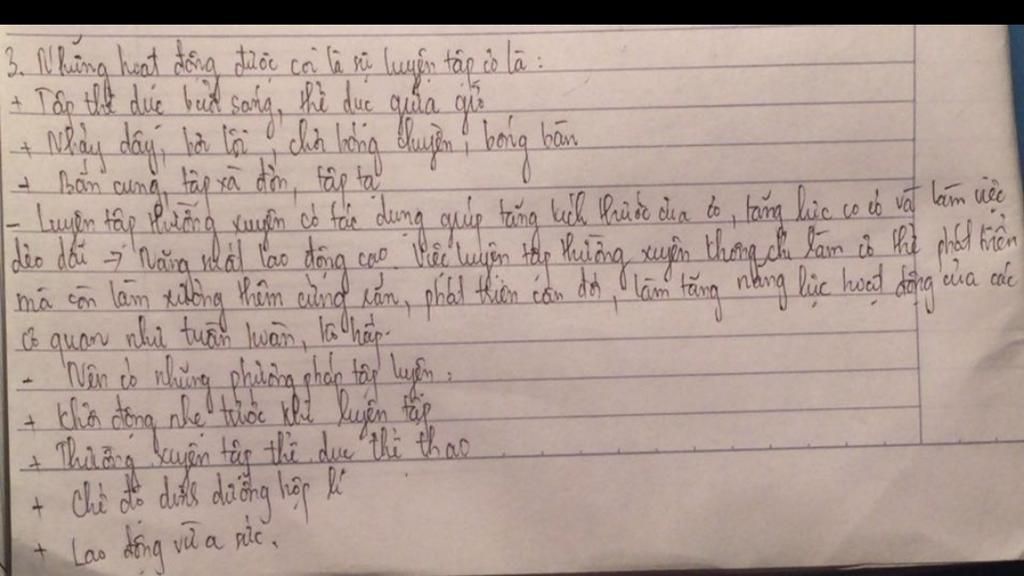 3. Những hoạt động được coi là sự luyện tập cơ là:
+ Tập thể dục buổi sáng, thể dục giữa giờ
+ Nhảy dây, bơi lội, chơi bóng chuyền, bóng bàn
+ Bắn cung, tập xà đơn, tập tạ
- Luyện tập thường xuyên có tác dụng giúp tăng kích thước của cơ, tăng lực co cơ và làm việc
dẻo dai → Năng suất lao động cao. Việc luyện tập thường xuyên không chỉ làm cơ thể phát triển
mà còn làm xương thêm cứng rắn, phát triển cân đối, làm tăng năng lực hoạt động của các
cơ quan như tuần hoàn, hô hấp.
- Nên có những phương pháp tập luyện:
+ Khởi động nhẹ trước khi luyện tập
+ Thường xuyên tập thể dục thể thao
+ Chế độ dưỡng hợp lí
+ Lao động vừa sức.